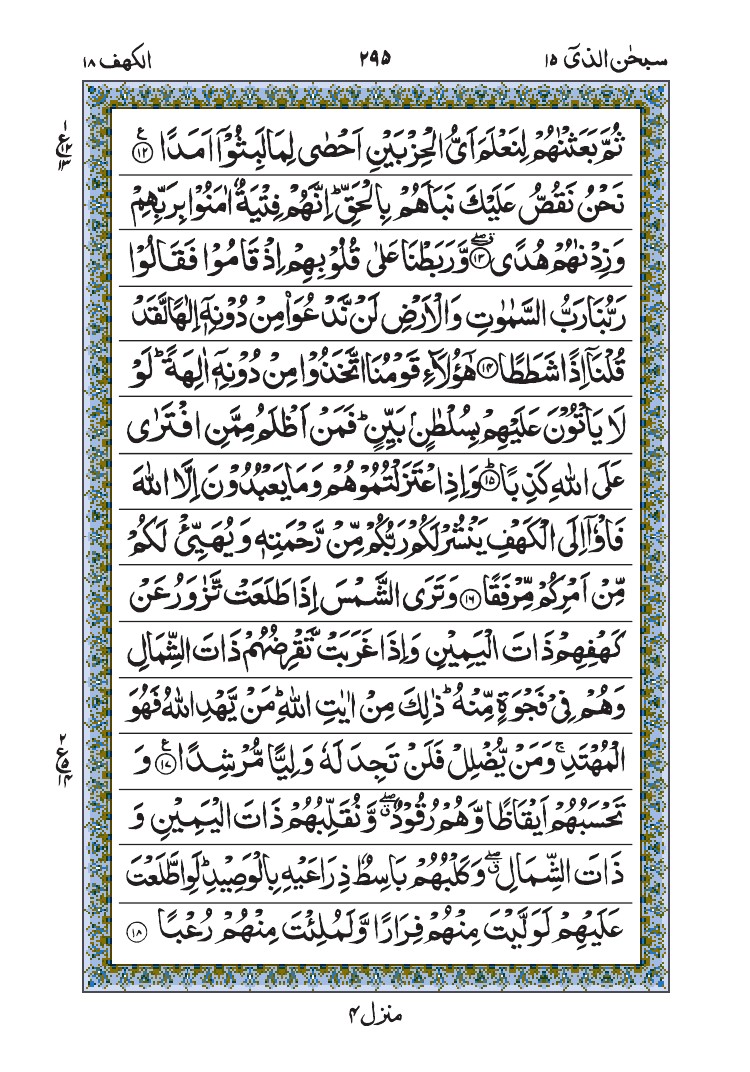 سبحٰن الذیٓ ۱۵
۲۹۵
الکھف ۱۸
ثُمَّ بَعَثْنٰهُمْ لِنَعْلَمَ اَیُّ الْحِزْبَیْنِ اَحْصٰی لِمَا لَبِثُوْۤا اَمَدًا ﴿۱۲﴾ؑ
۱
ع
۱۲
۱۳
نَحْنُ نَقُصُّ عَلَیْكَ نَبَاَهُمْ بِالْحَقِّ ؕ اِنَّهُمْ فِتْیَةٌ اٰمَنُوْا بِرَبِّهِمْ
وَ زِدْنٰهُمْ هُدًی ﴿۱۳﴾ۖۗ وَّ رَبَطْنَا عَلٰی قُلُوْبِهِمْ اِذْ قَامُوْا فَقَالُوْا
رَبُّنَا رَبُّ السَّمٰوٰتِ وَ الْاَرْضِ لَنْ نَّدْعُوَاۡ مِنْ دُوْنِهٖۤ اِلٰهًا لَّقَدْ
قُلْنَاۤ اِذًا شَطَطًا ﴿۱۴﴾ هٰۤؤُلَآءِ قَوْمُنَا اتَّخَذُوْا مِنْ دُوْنِهٖۤ اٰلِهَةً ؕ لَوْ
لَا یَاْتُوْنَ عَلَیْهِمْ بِسُلْطٰنٍۭ بَیِّنٍ ؕ فَمَنْ اَظْلَمُ مِمَّنِ افْتَرٰی
عَلَی اللّٰهِ كَذِبًا ﴿۱۵﴾ؕ وَ اِذِ اعْتَزَلْتُمُوْهُمْ وَ مَا یَعْبُدُوْنَ اِلَّا اللّٰهَ
فَاْوٗۤا اِلَی الْكَهْفِ یَنْشُرْ لَكُمْ رَبُّكُمْ مِّنْ رَّحْمَتِهٖ وَ یُهَیِّئْ لَكُمْ
مِّنْ اَمْرِكُمْ مِّرْفَقًا ﴿۱۶﴾ وَ تَرَی الشَّمْسَ اِذَا طَلَعَتْ تَّزٰوَرُ عَنْ
كَهْفِهِمْ ذَاتَ الْیَمِیْنِ وَ اِذَا غَرَبَتْ تَّقْرِضُهُمْ ذَاتَ الشِّمَالِ
وَ هُمْ فِیْ فَجْوَةٍ مِّنْهُ ؕ ذٰلِكَ مِنْ اٰیٰتِ اللّٰهِ ؕ مَنْ یَّهْدِ اللّٰهُ فَهُوَ
الْمُهْتَدِ ۚ وَ مَنْ یُّضْلِلْ فَلَنْ تَجِدَ لَهٗ وَلِیًّا مُّرْشِدًا ﴿۱۷﴾ؑ وَ
۲
ع
۵
۱۴
تَحْسَبُهُمْ اَیْقَاظًا وَّ هُمْ رُقُوْدٌ ۖۗ وَّ نُقَلِّبُهُمْ ذَاتَ الْیَمِیْنِ وَ
ذَاتَ الشِّمَالِ ۖۗ وَ كَلْبُهُمْ بَاسِطٌ ذِرَاعَیْهِ بِالْوَصِیْدِ ؕ لَوِ اطَّلَعْتَ
عَلَیْهِمْ لَوَلَّیْتَ مِنْهُمْ فِرَارًا وَّ لَمُلِئْتَ مِنْهُمْ رُعْبًا ﴿۱۸﴾
منزل ۴